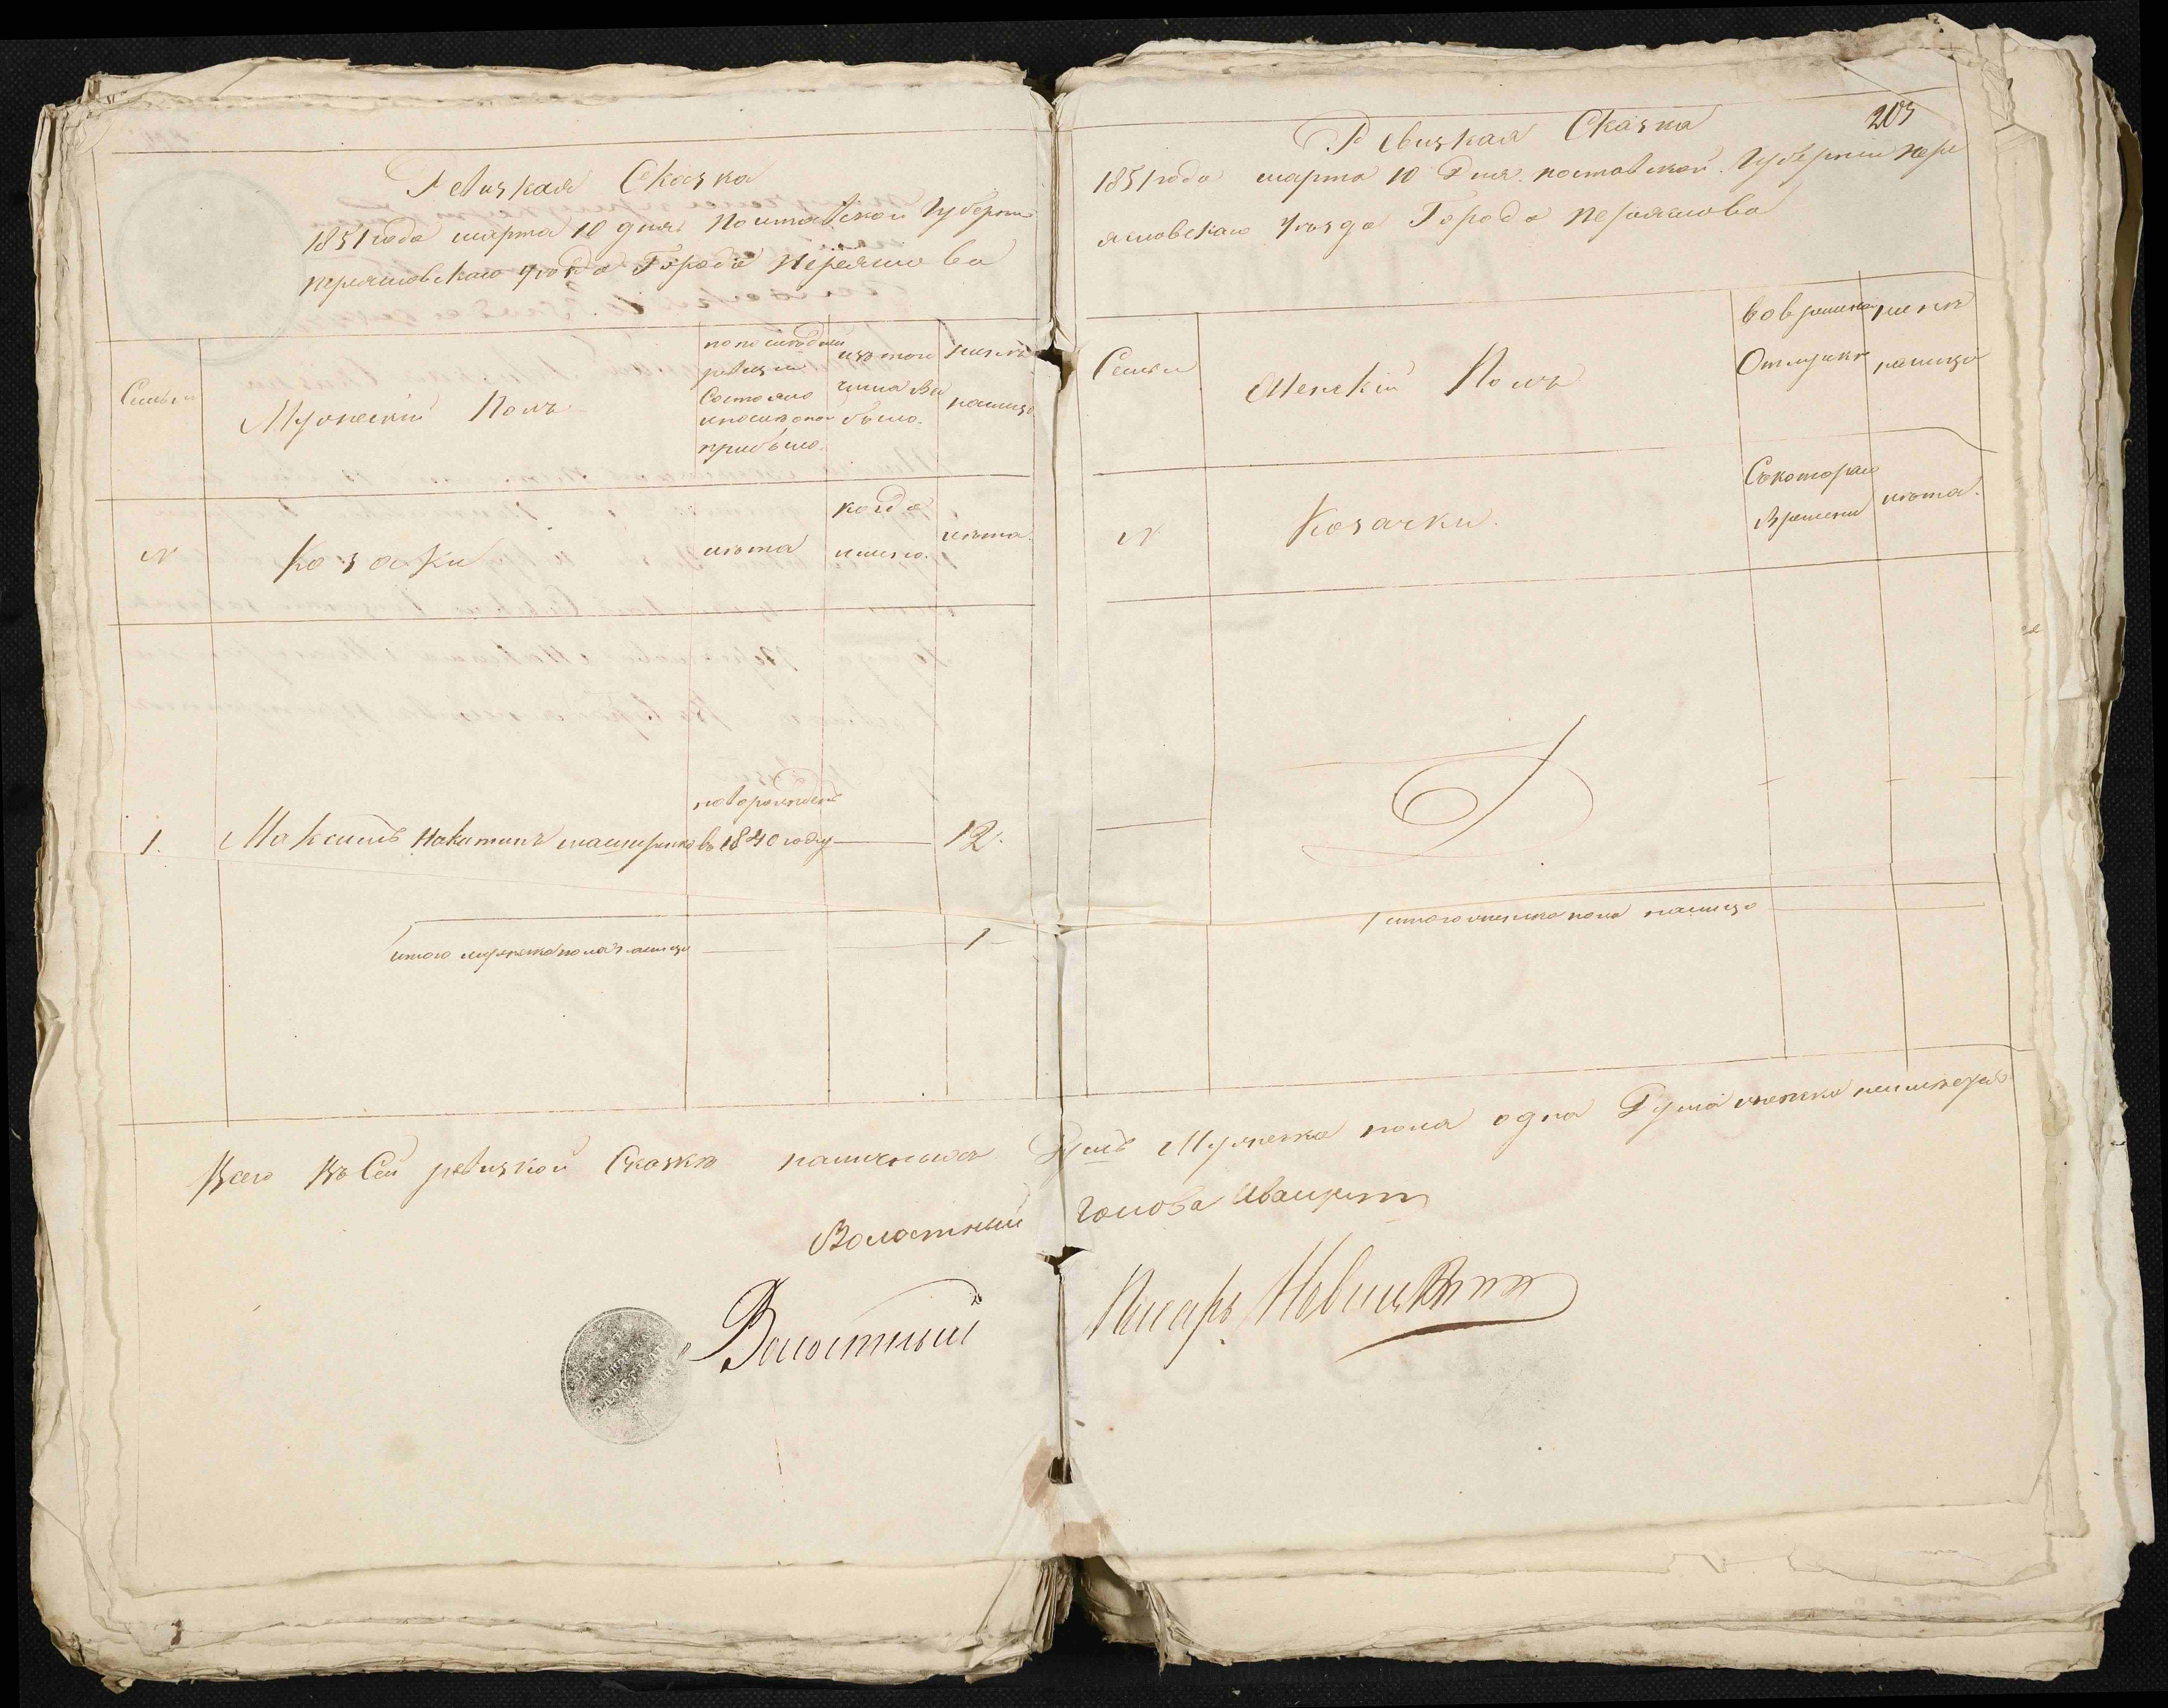 Ревизкая Сказка
1851 года марта 10 дня Полтавской Губернии
переяславскаго уезда Города переяслова
Семьи
Мужеский Полъ
по последней
ревизии
Состояло
и после оной
прибыло.
изъ того
числа вы
было.
ныне
налицо
№
Козаки
лета
когда
именно.
лета.
новорожденъ
1. Максимъ Никитинъ въ 1840 году 12.
итого мужеска пола налицо 1
203
Ревизкая Сказка
1851 года марта 10 Дня полтавской Губернии пере
яславскаго уезда Города переяслова
Семьи
Женский Полъ
во временной
Отлучке
ныне
налицо
№
Козачки.
Съ котораго
Времени
лета.
итого женска пола налицо
Всего Въ Сей ревизкой Сказке наличныхъ Душъ Мужеска пола одна Душа женска
Волостный голова
Волостный Писарь